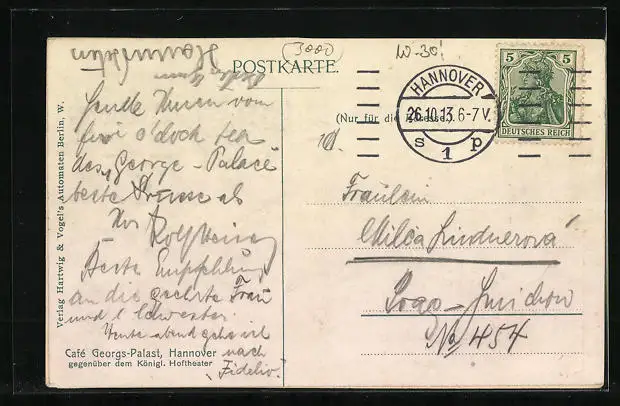 (3000)
W-30!
POSTKARTE.
(Nur für die Adresse.)
5 5
DEUTSCHES REICH
HANNOVER
26.10.13.6-7V.
S 1 P
Sende Ihnen vom
five o'clock tea
des „George-Palace"
beste Grüsse als
Ihr
Beste Empfehlung
an die geehrte Frau
und Schwester.
Heute abend gehe ich
nach
„Fidelio".
Fräulein
Milca Lindnerová
Prag-Smichow
No 454
Verlag Hartwig & Vogel's Automaten Berlin, W.
Café Georgs-Palast, Hannover
gegenüber dem Königl. Hoftheater